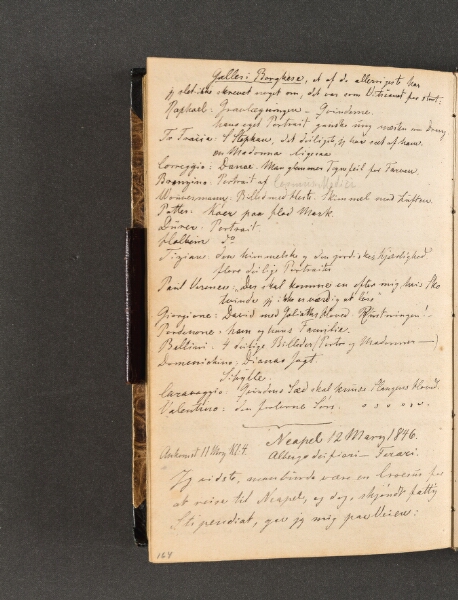 Galleri Borghese, et af de allerrigeste har
jeg slet ikke skrevet noget om, det var som
Raphael: Gravlægningen – Gratierne.
hans eget Portrait ganske ung næsten en Dreng
Fr. Francia: St Stephan, det deiligste jeg har seet af ham.
en Madonna ligesaa
Correggio: Danae. Man glemmer Tegnfeil for Farven.
Bronzino: Portrait af
Wouvermann: Billed med Heste. Skimmel mod Luften.
Potter: Køer paa flad Mark.
Dürer: Portrait.
Holbein do
Tizian: den himmelske og den jordiske Kjærlighed
flere deilige Portraiter
Paul Veronese: "Der skal komme en efter mig hvis Sko
tvinde jeg ikke er værdig at løse"
Giorgione: David med Goliaths Hoved. Rustningen!
Pordenone: ham og hans Familie.
Bellini: 4 deilige Billeder (Portr. og Madonner —)
Domenichino: Dianas Jagt.
Sibylle.
Caravaggio: Qvindens Sæd skal knuse Slangens Hoved.
Valentino: den forlorne Søn. o s v
Neapel 12 Marz 1846.
Ankomst 11 Marz Kl. 4.
Albergo dei fiori – Ferrari.
Jeg vidste, man burde være en Croesus for
at reise til Neapel, og dog, skjøndt fattig
Stipendiat, gav jeg mig paa Veien:
164